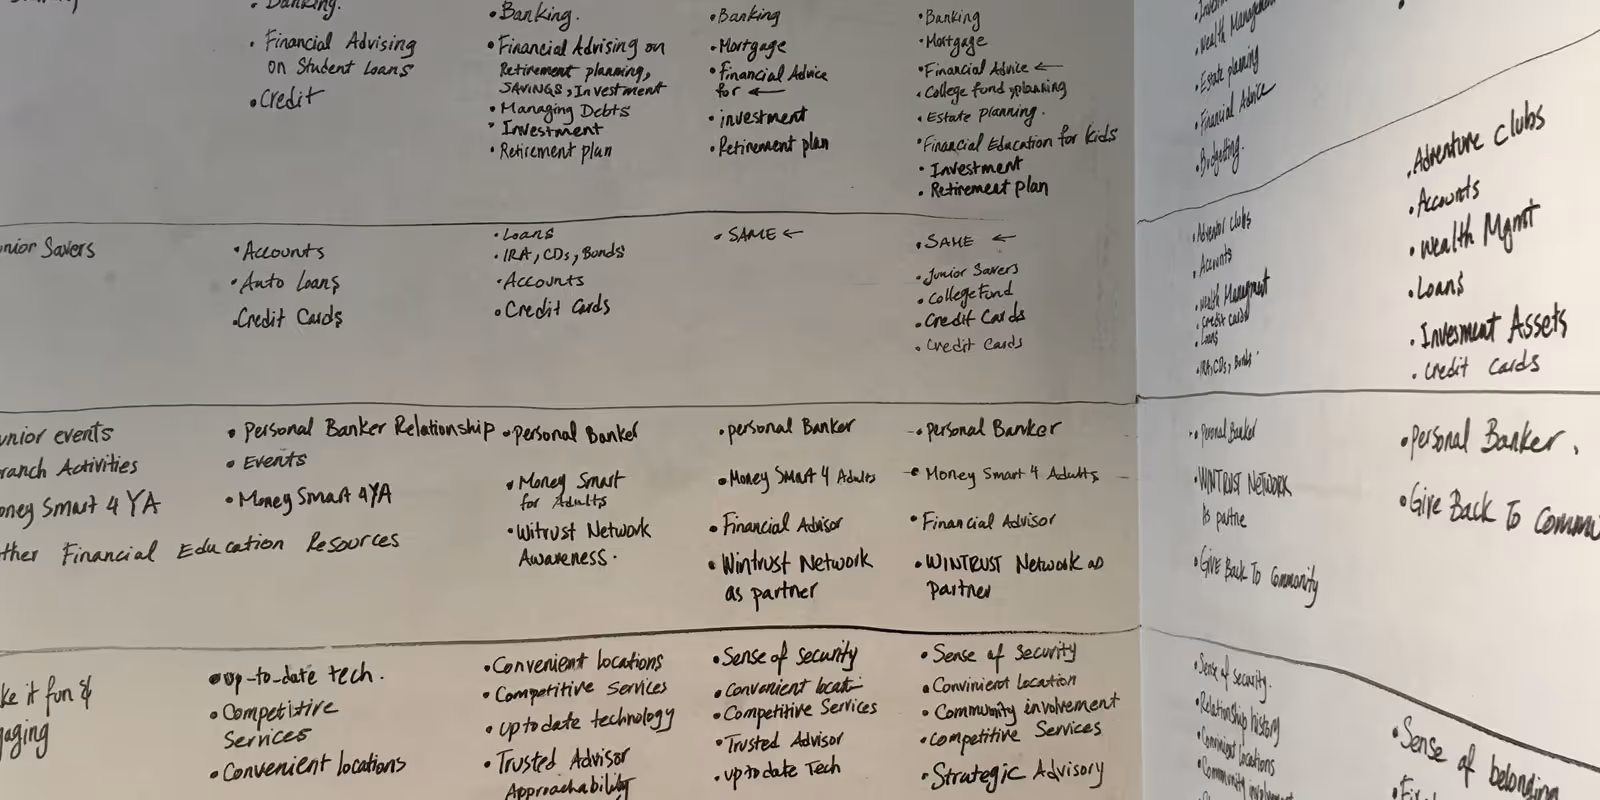 • Banking.
• Financial Advising
on Student Loans
• Credit
• Banking.
• Financial Advising on
Retirement planning,
SAVINGS, Investment
• Managing Debts
• Investment
• Retirement plan
• Banking
• Mortgage
• Financial Advice
for ←
• investment
• Retirement plan
• Banking
• Mortgage
• Financial Advice ←
• College fund planning
• Estate planning.
• Financial Education for Kids
• Investment
• Retirement plan
• Wealth Management
• Estate planning
• Financial Advice
• Budgetting.
nior Savers
• Accounts
• Auto Loans
• Credit Cards
• Loans
• IRA, CDs, Bonds
• Accounts
• Credit Cards
• SAME ←
• SAME ←
• Junior Savers
• College Fund
• Credit Cards
• Credit Cards
• Accounts
• Wealth Managment
• Credit Cards
• Loans
• IRA, CDs, Bonds
• Adventure clubs
• Accounts
• Wealth Mgmt
• Loans
• Invesment Assets
• Credit Cards
unior events
ranch Activities
oney Smart 4 YA
ther Financial Education Resources
• Personal Banker Relationship
• Events
• Money Smart 4YA
• Personal Banker
• Money Smart
for Adults
• Witrust Network
Awareness.
• personal Banker
• Money Smart 4 Adults
• Financial Advisor
• Wintrust Network
as partner
• personal Banker
• Money Smart 4 Adults
• Financial Advisor
• WINTRUST Network as
partner
• Personal Banker
• WINTRUST NETWORK
As partne
• GIVE BACK To Community
• Personal Banker.
• Give Back To Commu
ke it fun &
gaging
• up-to-date tech.
• Competitive
Services
• Convenient locations
• Convenient locations
• Competitive Services
• up to date technology
• Trusted Advisor
Approachability
• Sense of security
• Convenient locati
• Competitive Services
• Trusted Advisor
• up to date Tech
• Sense of security
• Convinient Location
• Community involvement
• Competitive Services
• Strategic Advisory
• Sense of security.
• Relationship history
• Convinient locations
• Community involvement
• Sense of belonging